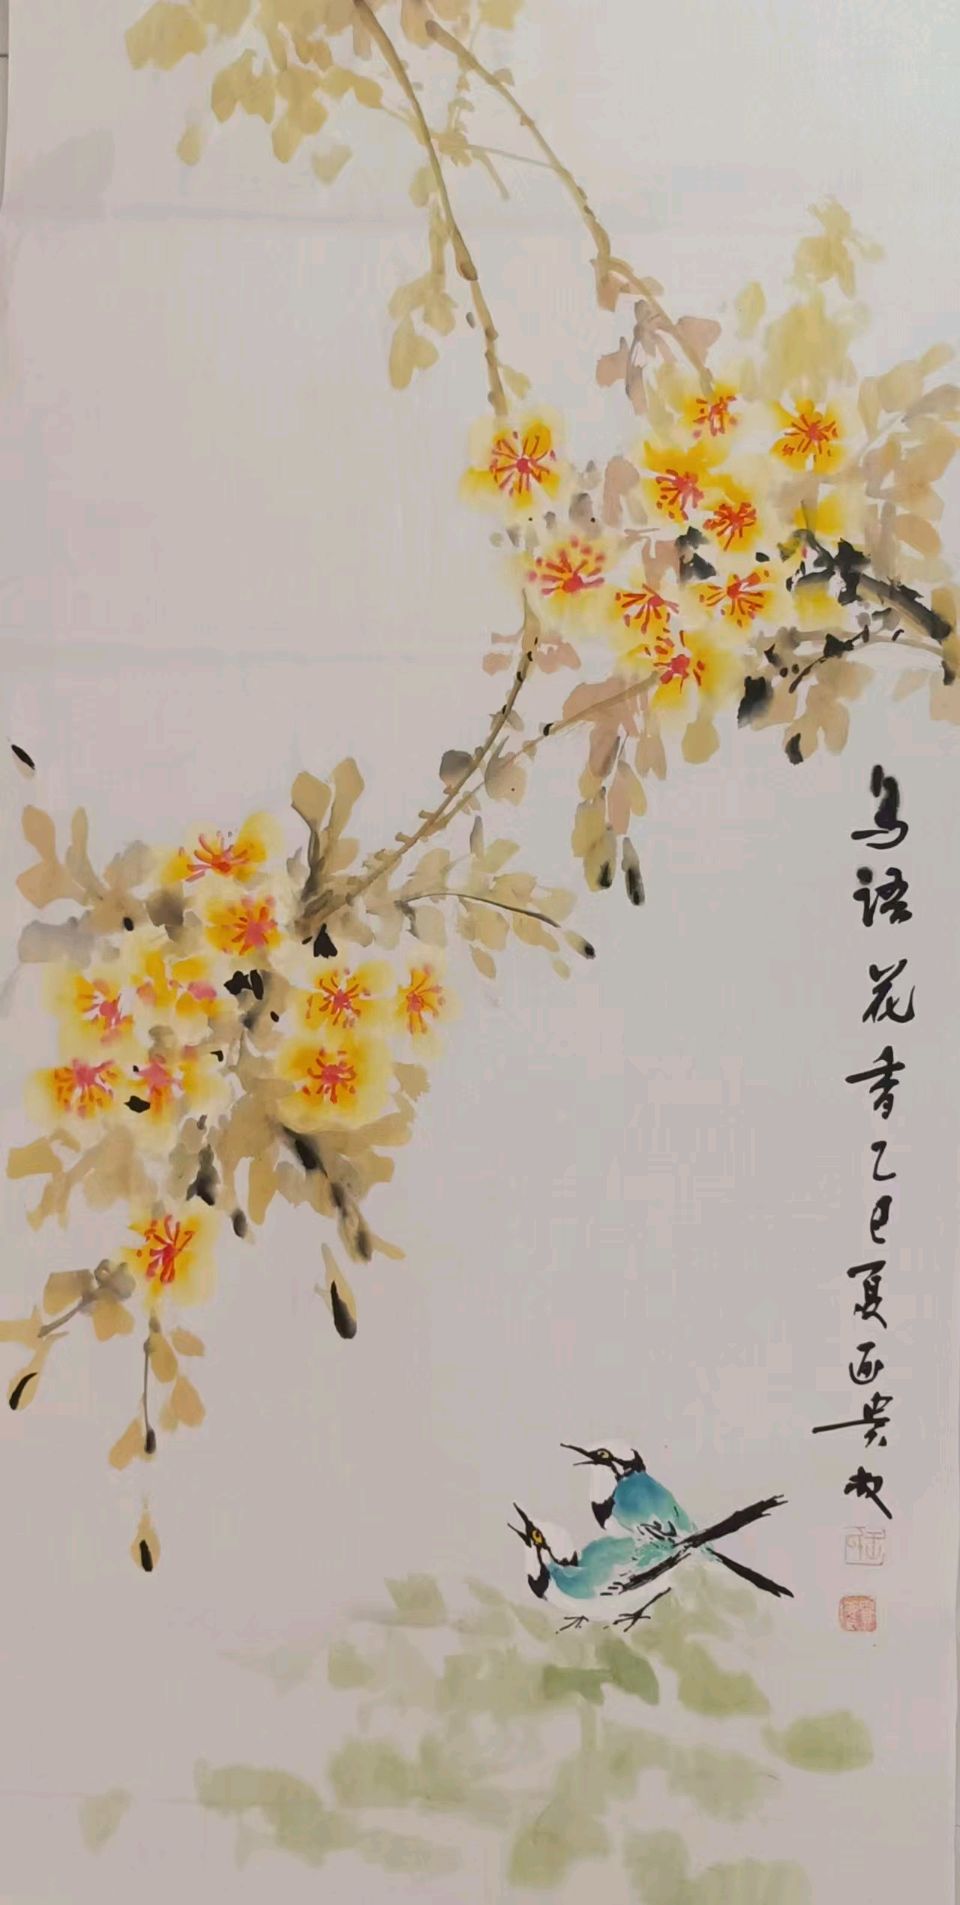 鸟语花香乙巳夏画贵